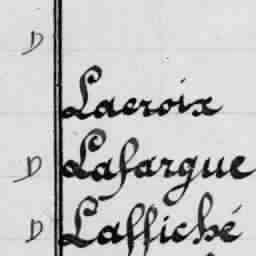 D
Lacroix
D Lafargue
D Laffiché